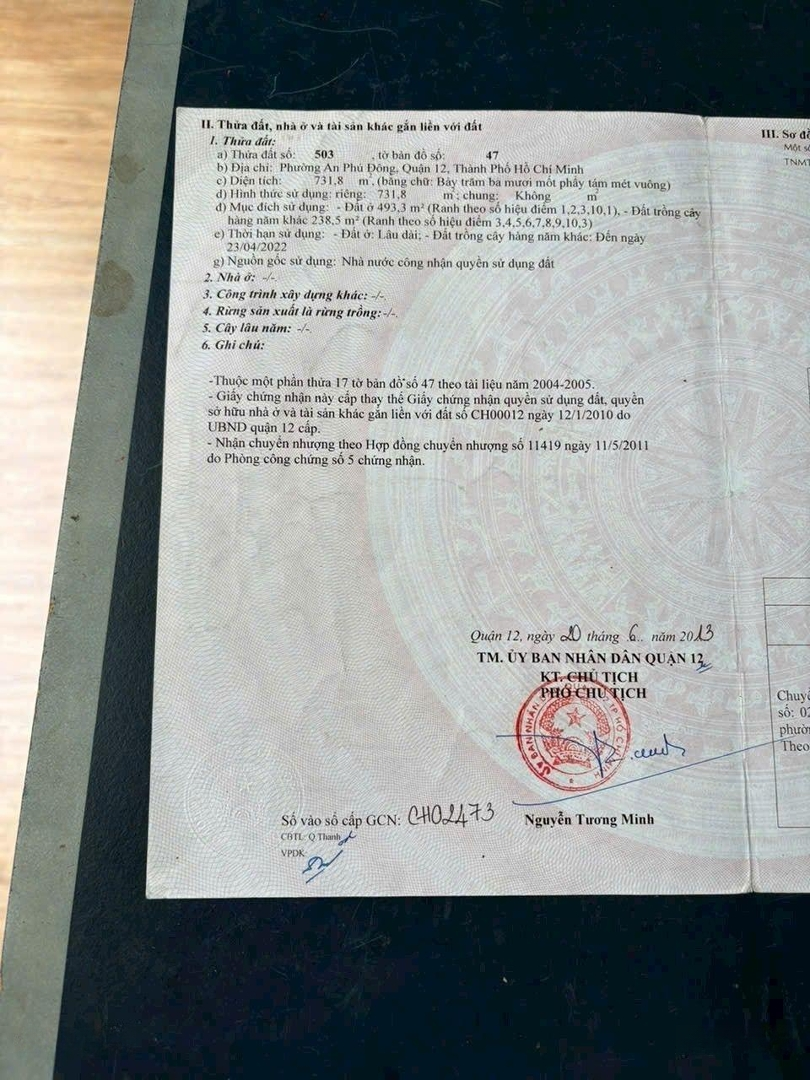 II. Thửa đất, nhà ở và tài sản khác gắn liền với đất
1. Thửa đất:
a) Thửa đất số: 503 , tờ bản đồ số: 47
b) Địa chỉ: Phường An Phú Đông, Quận 12, Thành Phố Hồ Chí Minh
c) Diện tích: 731,8 m², (bằng chữ: Bảy trăm ba mươi mốt phẩy tám mét vuông)
d) Hình thức sử dụng: riêng: 731,8 m²; chung: Không m²
đ) Mục đích sử dụng: - Đất ở 493,3 m² (Ranh theo số hiệu điểm 1,2,3,10,1), - Đất trồng cây
hàng năm khác 238,5 m² (Ranh theo số hiệu điểm 3,4,5,6,7,8,9,10,3)
e) Thời hạn sử dụng: - Đất ở: Lâu dài; - Đất trồng cây hàng năm khác: Đến ngày
23/04/2022
g) Nguồn gốc sử dụng: Nhà nước công nhận quyền sử dụng đất
2. Nhà ở: -/-.
3. Công trình xây dựng khác: -/-.
4. Rừng sản xuất là rừng trồng: -/-.
5. Cây lâu năm: -/-.
6. Ghi chú:
-Thuộc một phần thửa 17 tờ bản đồ số 47 theo tài liệu năm 2004-2005.
- Giấy chứng nhận này cấp thay thế Giấy chứng nhận quyền sử dụng đất, quyền
sở hữu nhà ở và tài sản khác gắn liền với đất số CH00012 ngày 12/1/2010 do
UBND quận 12 cấp.
- Nhận chuyển nhượng theo Hợp đồng chuyển nhượng số 11419 ngày 11/5/2011
do Phòng công chứng số 5 chứng nhận.
Quận 12, ngày 20 tháng 6.. năm 2013
TM. ỦY BAN NHÂN DÂN QUẬN 12
KT. CHỦ TỊCH
PHÓ CHỦ TỊCH
Nguyễn Tương Minh
Số vào sổ cấp GCN: CH02473
CBTL: Q.Thanh
VPĐK:
III. Sơ đồ
Một số
TNMT
Chuyể
số: 02
phườn
Theo